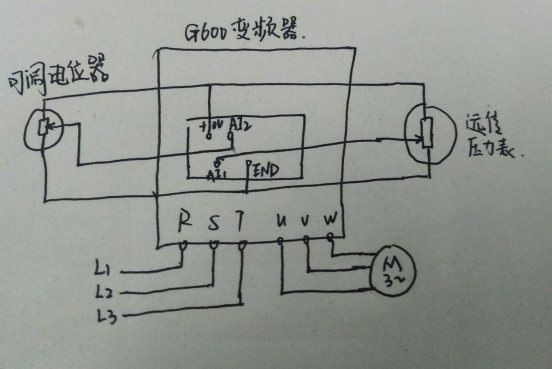 G600变频器.
可调电位器
远传
压力表.
+10V AI2
AI1 END
R S T U V W
L1
L2
L3
M
3~